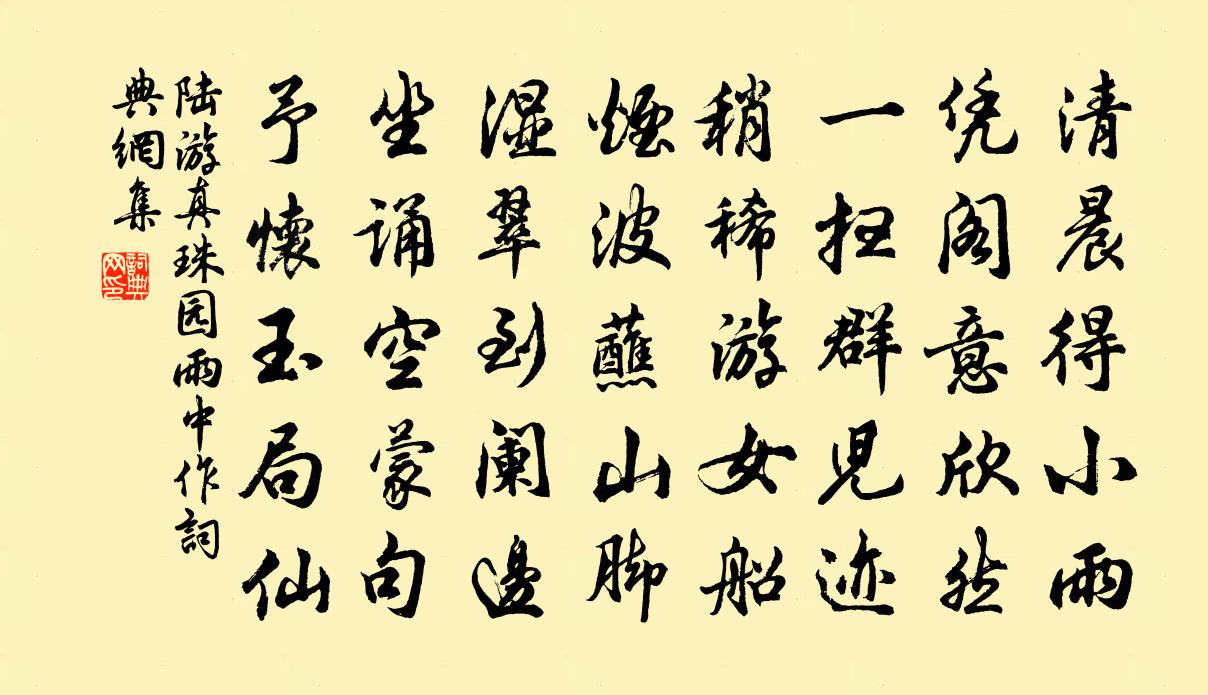 清晨得小雨
凭阁意欣然
一扫群儿迹
稍稀游女船
烟波蘸山脚
湿翠到阑边
坐诵空蒙句
予怀玉局仙
陆游真珠园雨中作詞
典網集
詞典网印